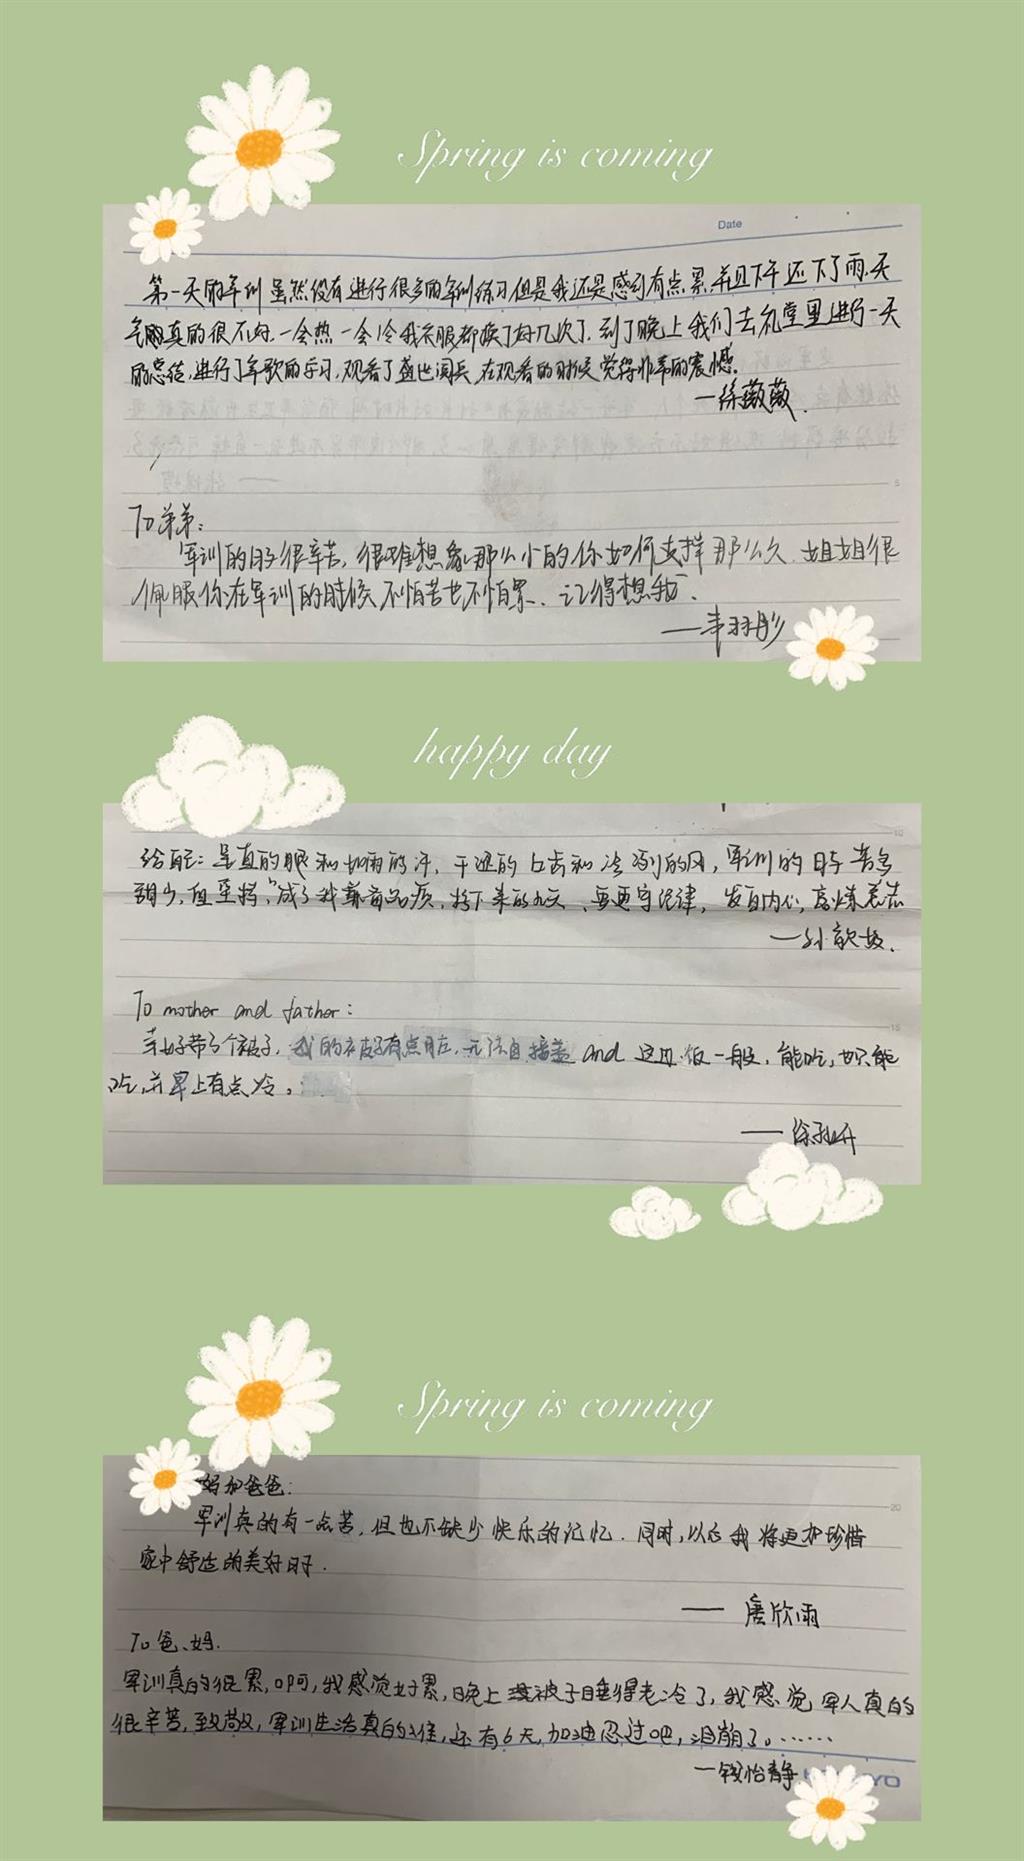 Spring is coming
Date
第一天的军训虽然没有进行很多的军训练习但是我还是感到有点累,并且下午还下了雨.天
气真的很不好.一会热一会冷我衣服都换了好几次了.到了晚上我们去礼堂里进行一天
的总结,进行了军歌的学习,观看了盛世阅兵,在观看的时候觉得非常的震憾.
—徐薇薇.
5
To弟弟:
军训的日子很辛苦,很难想象那么小的你如何支撑那么久.姐姐很
佩服你在军训的时候不怕苦也不怕累.记得想我.
—韦羽彤
happy day
10
给自己:是直的腿和如雨的汗,干涩的口齿和冷冽的风,军训的日子苦多
甜少,但坚持成了我兼首品质,接下来的九天,要更守纪律,发自内心,磨炼意志
—孙歆
To mother and father:
15
幸好带了个被子,我的衣被子有点脏,无法自接盖and这里饭一般,能吃,也只能
吃,并早上有点冷。
—徐
Spring is coming
妈和爸爸:
20
军训真的有一点苦,但也不缺少快乐的记忆.同时,以后我将更加珍惜
家中舒适的美好日子.
—唐欣雨
To爸、妈.
军训真的很累,呵,我感觉好累,晚上盖被子睡得老冷了,我感觉军人真的
很辛苦,致敬,军训生活真的难,还有6天,加油忍过吧,泪崩了。……
—钱怡静